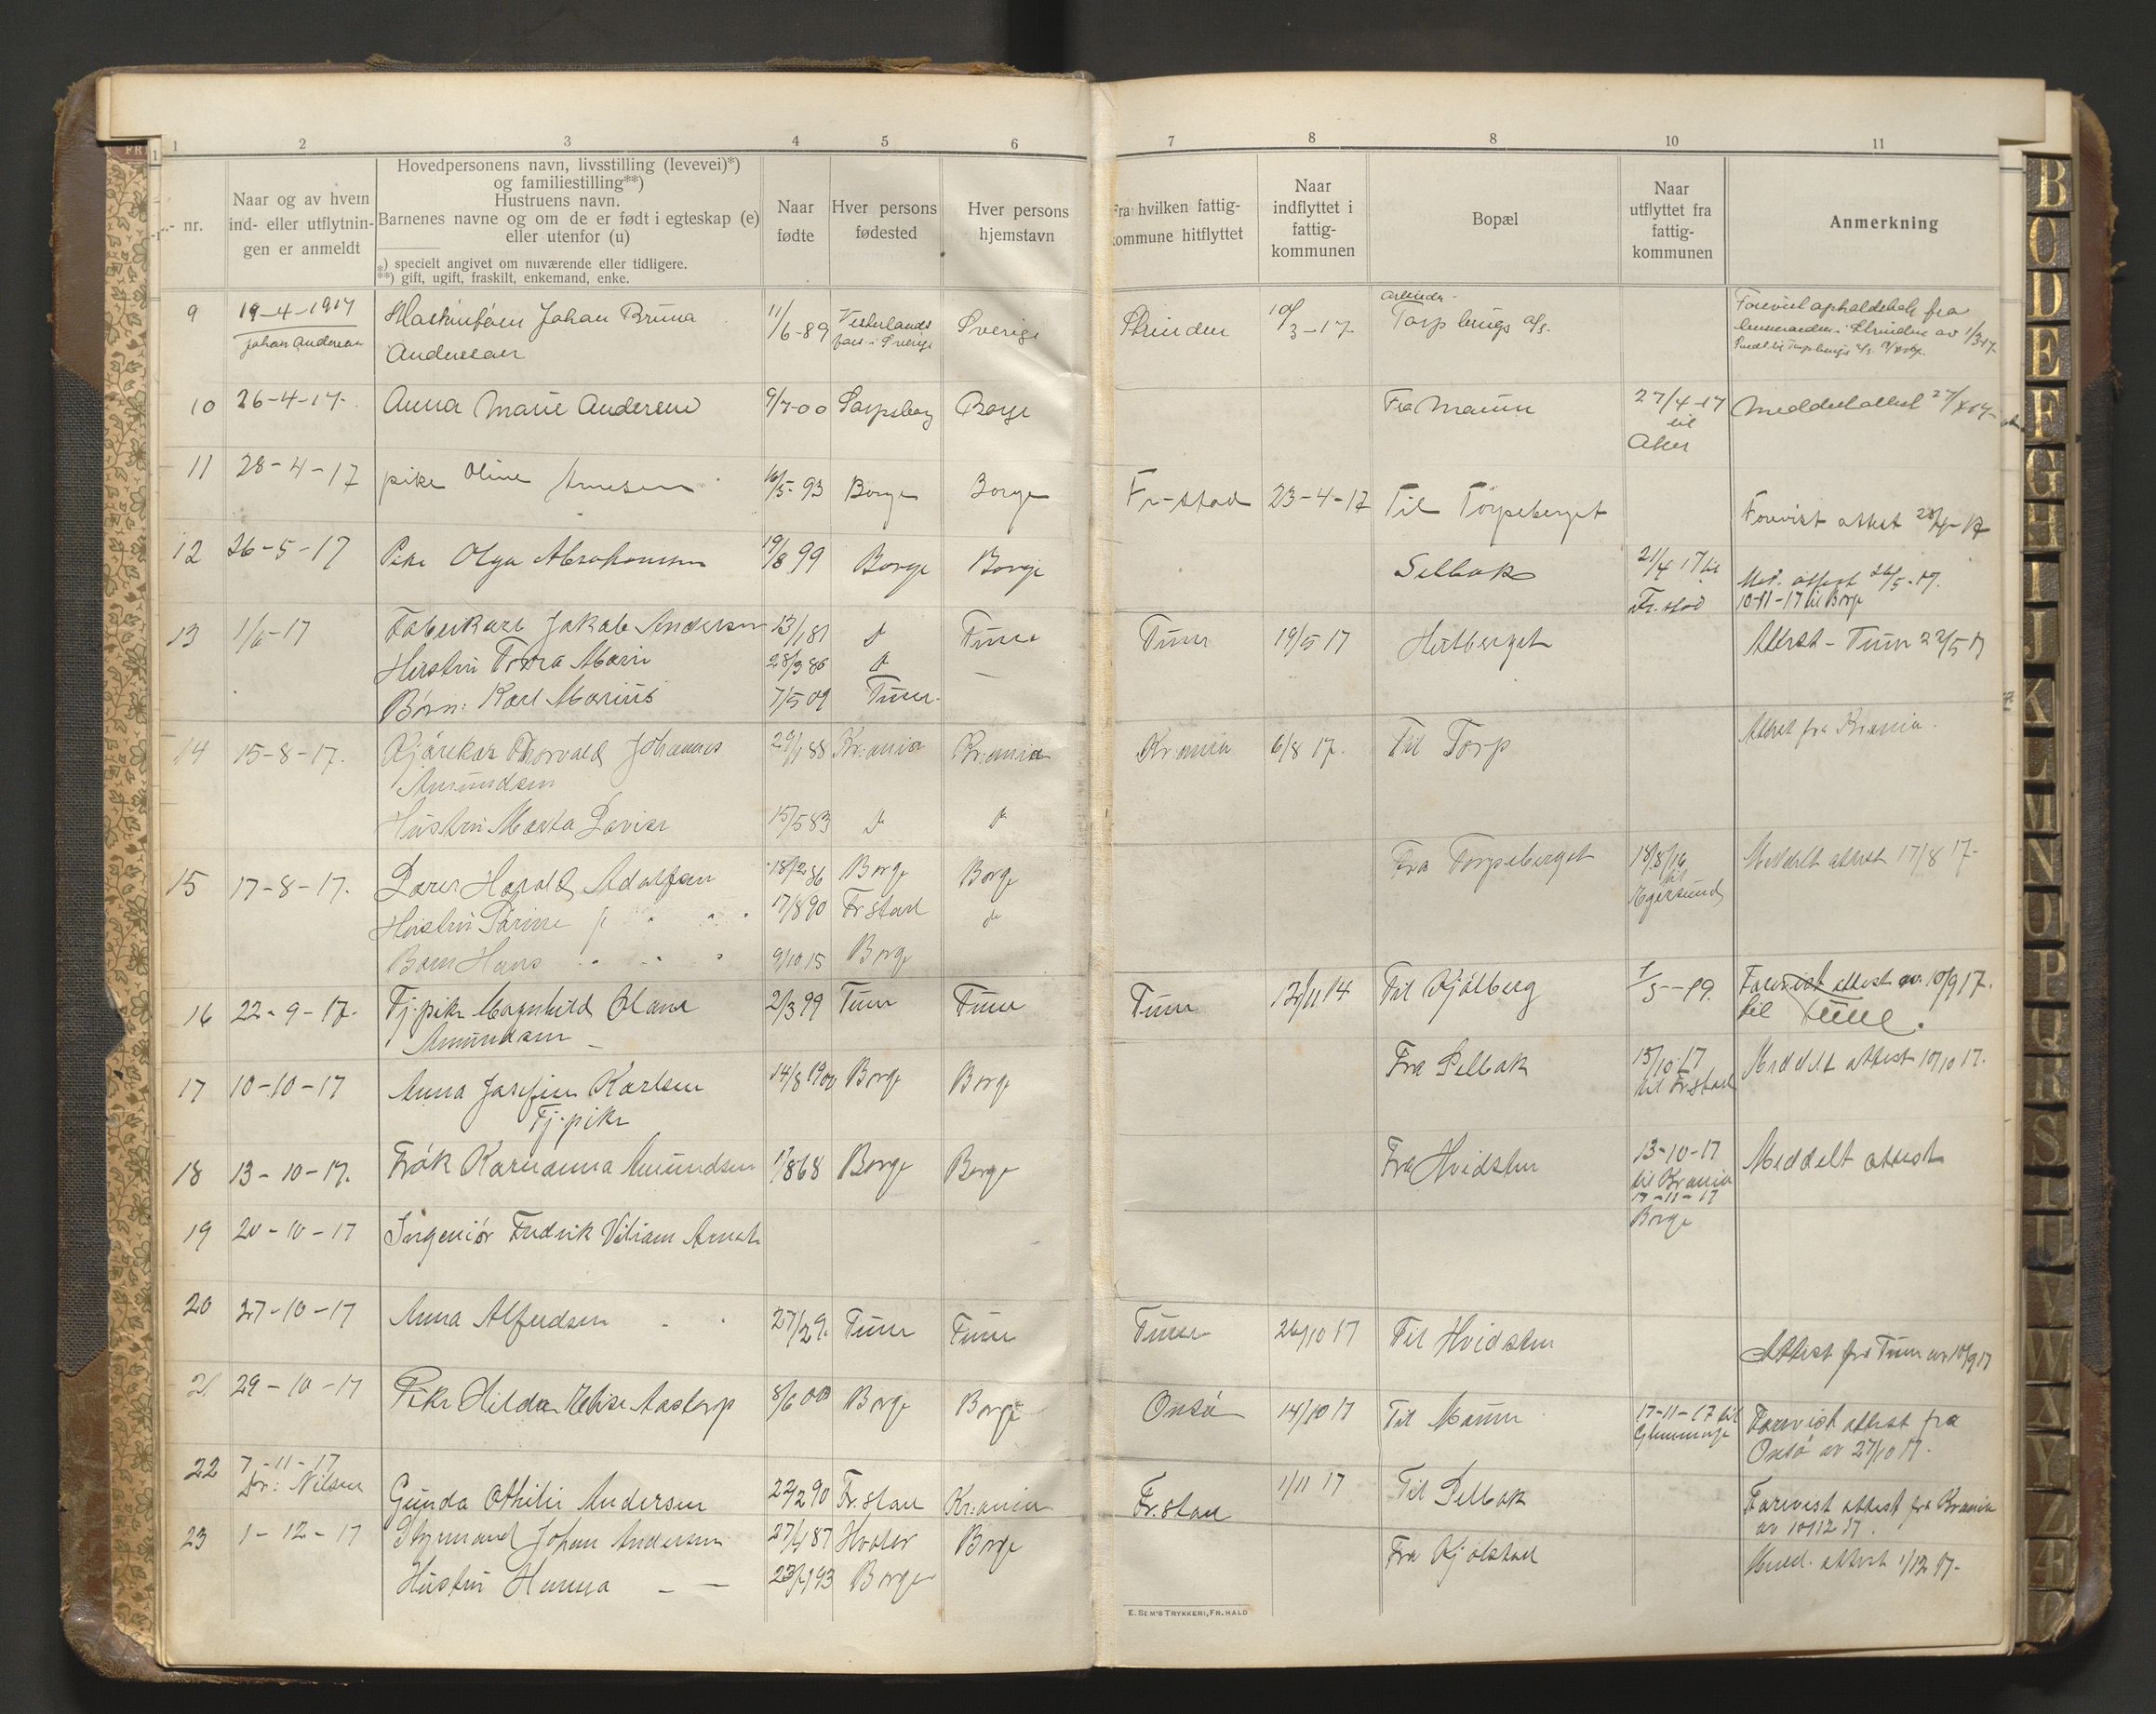 1 2 3 4 5 6 7 8 8 10 11
nr.
Naar og av hvem
ind- eller utflytnin-
gen er anmeldt
Hovedpersonens navn, livsstilling (levevei)*)
og familiestilling**)
Hustruens navn.
Barnenes navne og om de er født i egteskap (e)
eller utenfor (u)
*) specielt angivet om nuværende eller tidligere.
**) gift, ugift, fraskilt, enkemand, enke.
Naar
fødte
Hver persons
fødested
Hver persons
hjemstavn
Fra hvilken fattig-
kommune hitflyttet
Naar
indflyttet i
fattig-
kommunen
Bopæl
Naar
utflyttet fra
fattig-
kommunen
Anmerkning
9 19-4-1917 Johan Bruna 11/6-89 Sverige Strinden 10/3-17 Torp brugs a/s.
Johan Andersen Andersen
10 26-4-17 Anna Marie Andersen 9/7-00 Sarpsborg Borge Fra Maum 27/4-17 Meddelt attest 27/4-17
til
Aker
11 28-4-17 pike Oline Arnesen 16/5-93 Borge Borge Fr-stad 23-4-17 Til Torpeberget Forevist attest 28/4-17
12 26-5-17 Pike Olga Abrahamsen 19/8 99 Borge Borge Selbak 21/4 17 til Med. attest 26/5-17.
Fr.stad 10-11-17 til Borge
13 1/6-17 Jakob Andersen 13/1 81 d Tune Tune 19/5 17 Attest - Tune 22/5 17
Hustru Thora Marie 28/3 86 d
Børn: Karl Marius 7/5 09 Tune
14 15-8-17. Thorvald Johannes 29/1 88 Kr:ania Kr:ania Kr:ania 6/8 17. Til Torp Attest fra Kr.ania
Amundsen
Hustru Marta 15/5 83 d d
15 17-8-17. Harald Adolfsen 18/2 86 Borge Borge Fra Torpeberget 18/8/16 Meddelt attest 17/8 17-
til
Egersund
Hustru 17/8 90 Fr.stad d
Barn Hans 9/10 15 Borge
16 22-9-17. Tj.pike Magnhild Olava 2/3 99 Tune Tune Tune 12/11 14 Til Kjølberg 1/5-19. Forevist attest av 10/9 17.
Amundsen til Tune.
17 10-10-17 Anna Josefine Karlsen 14/8 1900 Borge Borge Fra Selbak 15/10 17 Meddelt attest 10/10 17.
Tj.pike til Fr.stad
18 13-10-17. Frøk Karnanna Amundsen 1/8 68 Borge Borge Fra Hvidsten 13-10-17 Meddelt attest
til Kr.ania
17-11-17
Borge
19 20-10-17 Ingeniør Fredrik Viliam
20 27-10-17 Anna Alfredsen Tune Tune Tune 26/10 17 Til Hvidsten Attest fra Tune av 10/9 17
21 29-10-17 Pike Hilda Elise Aastorp 8/6 00 Borge Borge Onsø 14/10 17 Til Maum 17-11-17 til Forevist attest fra
Glemminge Onsø av 27/10 17.
22 7-11-17
Dr: Nilsen Gunda Othilie Andersen 22/2 90 Fr.stad Kr:ania Fr.stad 1/11 17 Til Selbak Forevist attest fra Kr.ania
av 10/12 17.
23 1-12-17 Styrmand Johan Andersen 27/4 87 Hvaler Borge Fra Kjølstad Medd. attest 1/12 17-
Hustru Hanna - - Borge
E. SEM'S TRYKKERI, FR.HALD
B
C
D
E
F
G
H
I
J
K
L
M
N
O
P
Q
R
S
T
U
V
W
X
Y
Z
Æ
Ø